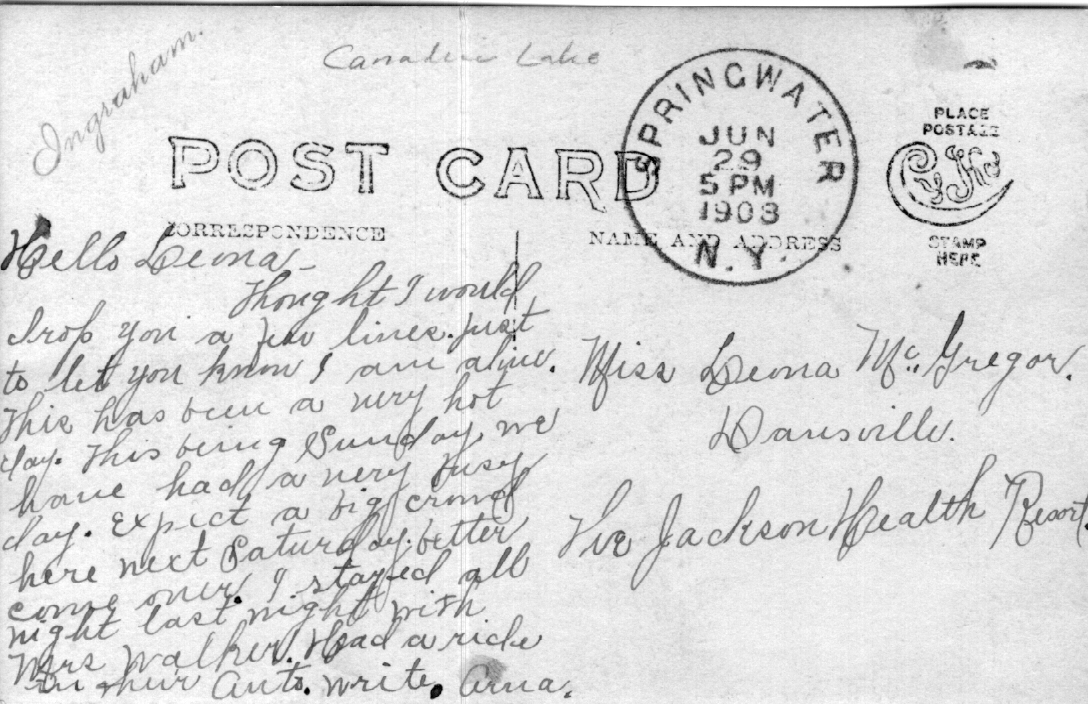 Ingraham.
Canadice Lake
POST CARD
SPRINGWATER
JUN
29
5 PM
1908
N.Y.
PLACE
POSTAGE
CYKO
STAMP
HERE
CORRESPONDENCE
NAME AND ADDRESS
Hello Leona—
Thought I would
drop you a few lines just
to let you know I am alive.
This has been a very hot
day. This being Sunday we
have had a very busy
day. Expect a big crowd
here next Saturday. better
come over. I stayed all
night last night with
Mrs Walker. Had a ride
in their Auto. Write.
Miss Leona Mc.Gregor.
Dansville.
The Jackson Health Resort.